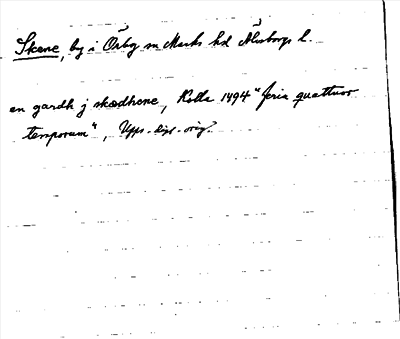 Skene, by i Örby sn Marks hd Älvsborgs l.
en gardh j skædhene, Kolla 1494 "feria quattuor
temporum", Upps. dipl. orig.